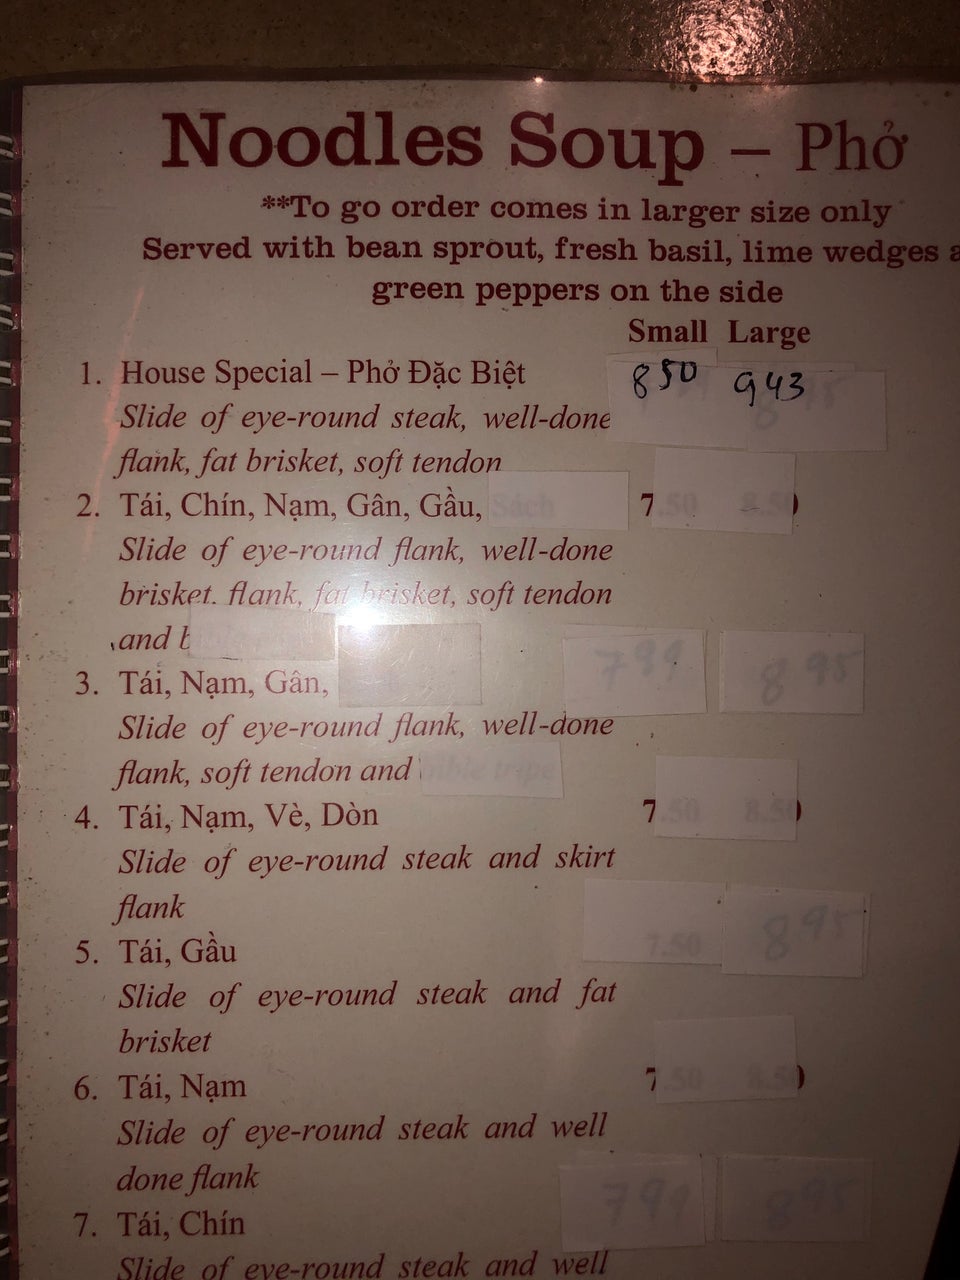 Noodles Soup – Phở
**To go order comes in larger size only
Served with bean sprout, fresh basil, lime wedges
green peppers on the side
Small Large
1. House Special – Phở Đặc Biệt 850 943
Slide of eye-round steak, well-done
flank, fat brisket, soft tendon
2. Tái, Chín, Nạm, Gân, Gầu, Sách 7.50 8.50
Slide of eye-round flank, well-done
brisket. flank, fat brisket, soft tendon
and b
3. Tái, Nạm, Gân, 799 895
Slide of eye-round flank, well-done
flank, soft tendon and bible tripe
4. Tái, Nạm, Vè, Dòn 7.50 8.50
Slide of eye-round steak and skirt
flank
5. Tái, Gầu 7.50 895
Slide of eye-round steak and fat
brisket
6. Tái, Nạm 7.50 8.50
Slide of eye-round steak and well
done flank
7. Tái, Chín 799 895
Slide of eye-round steak and well